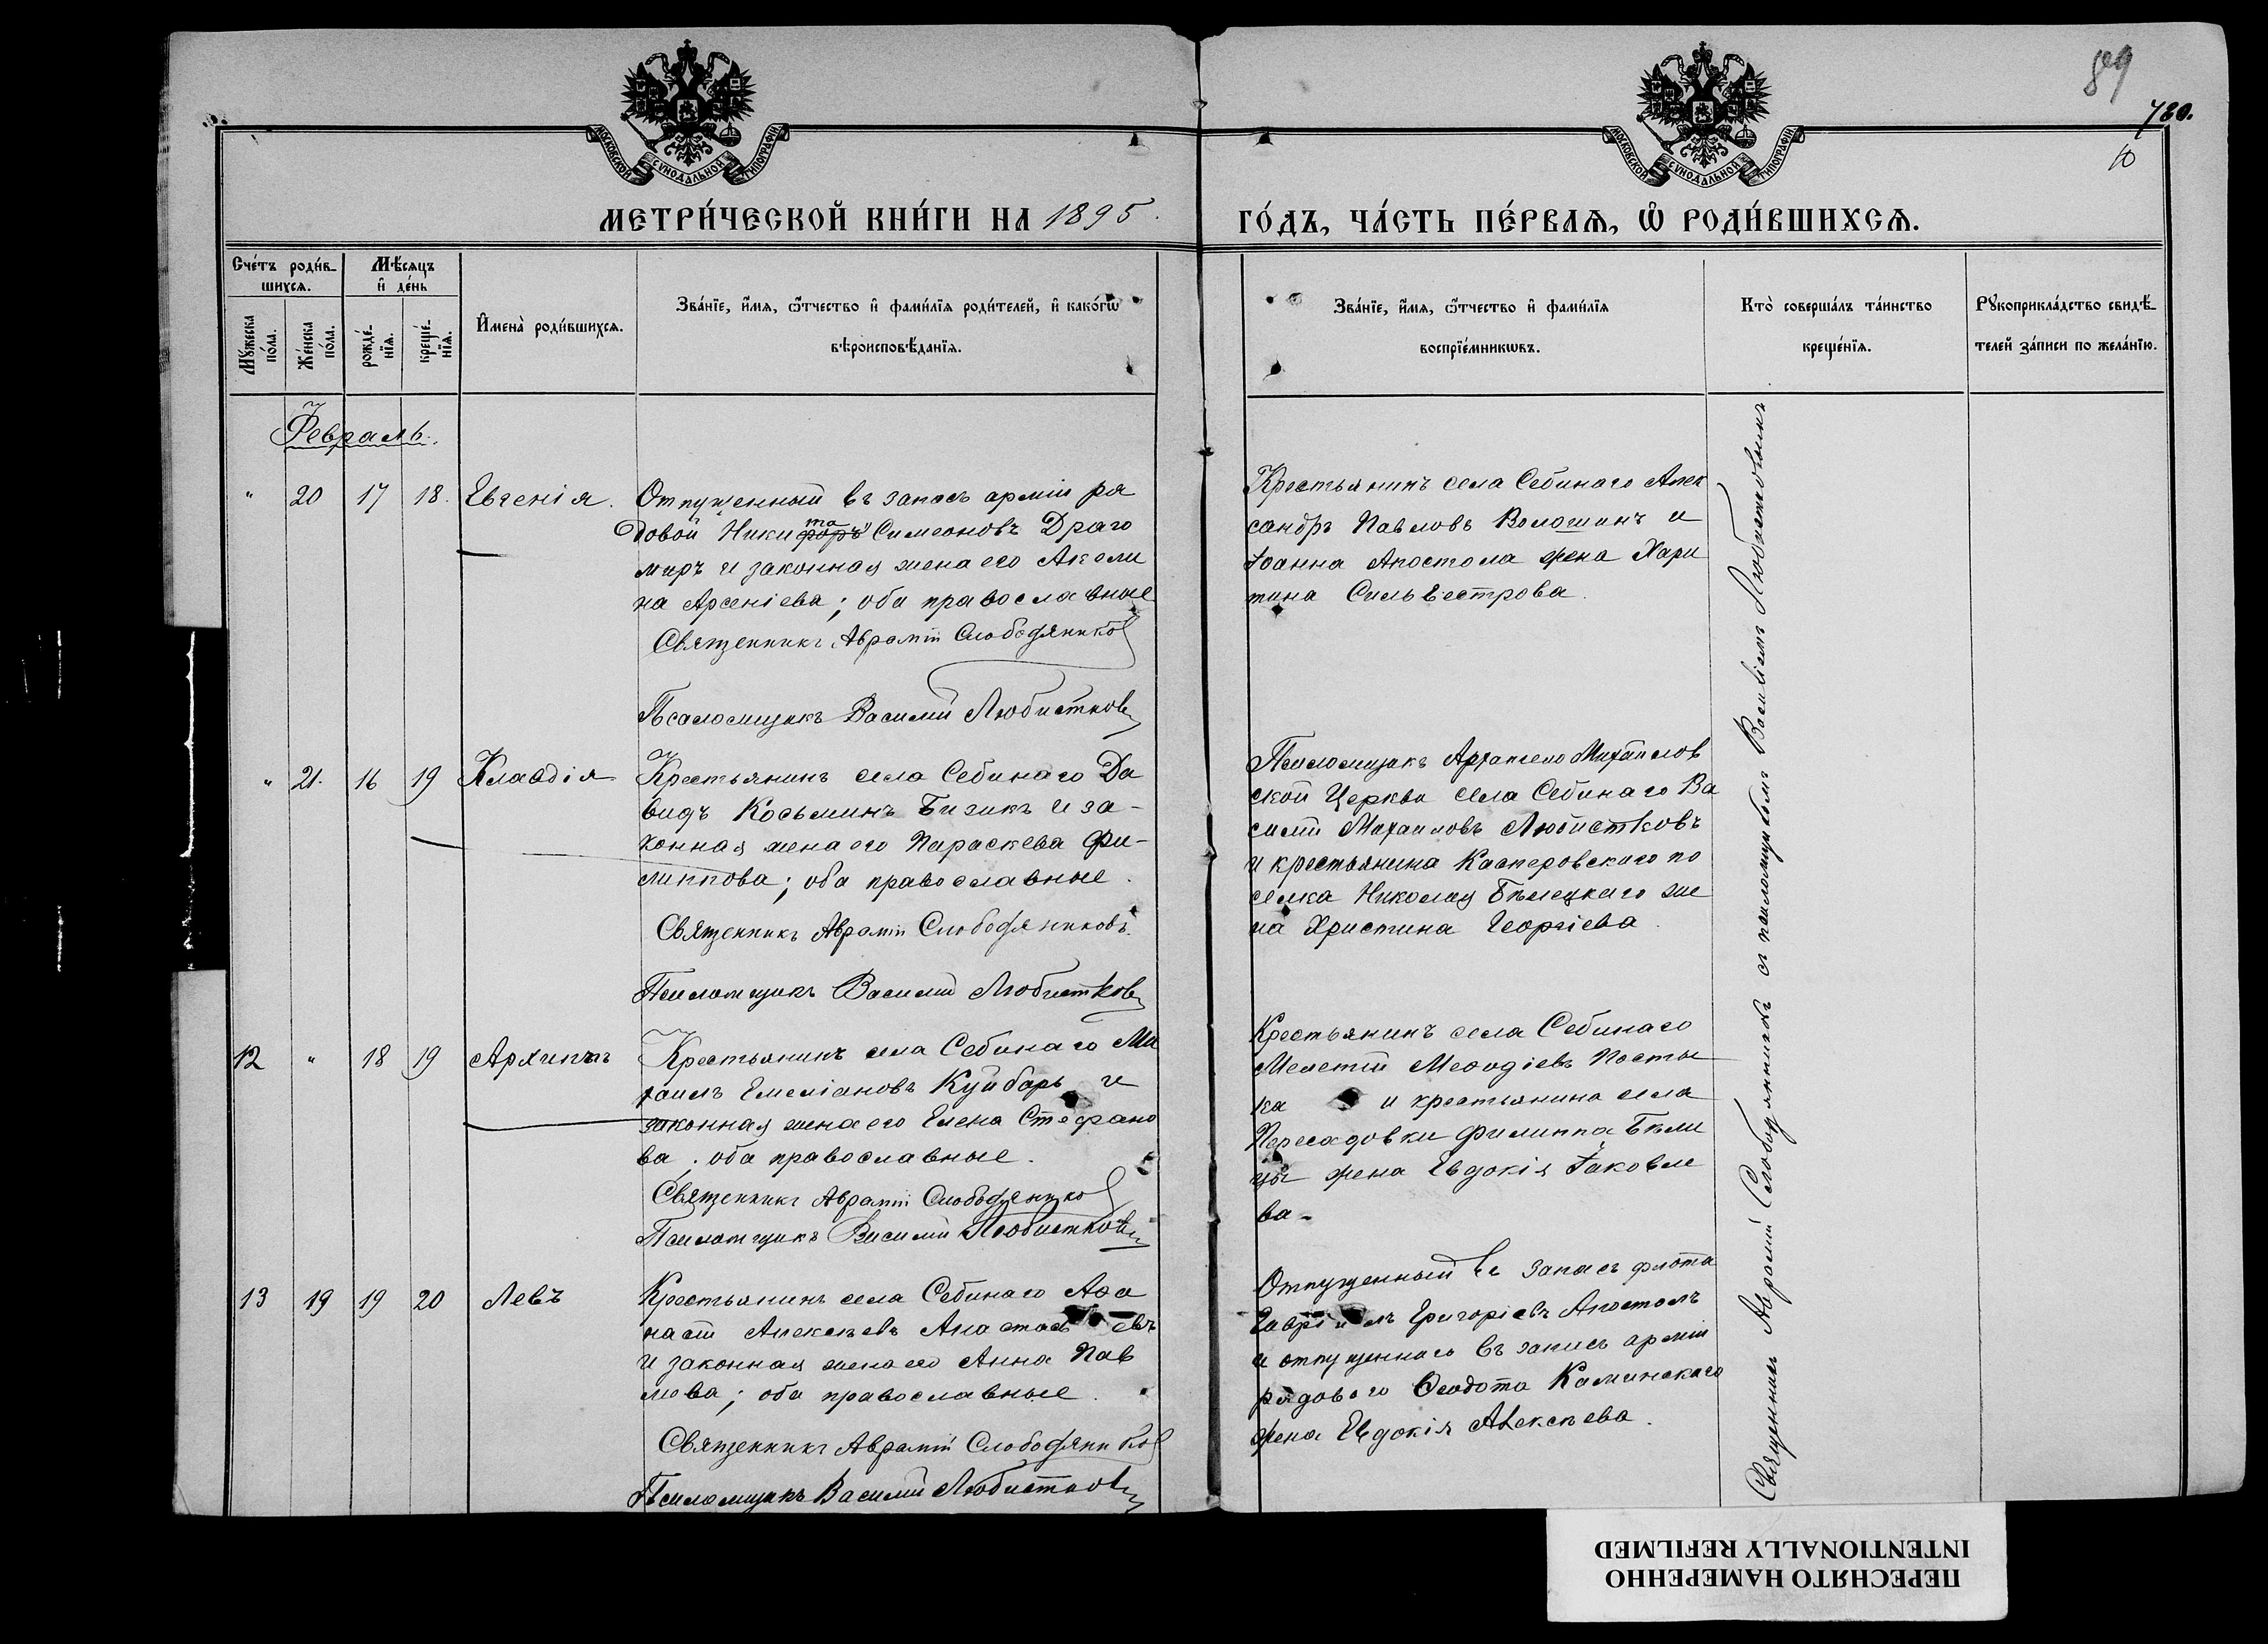 89
780.
10
МОСКОВСКОЙ СѴНОДАЛЬНОЙ ТИПОГРАФІИ
МОСКОВСКОЙ СѴНОДАЛЬНОЙ ТИПОГРАФІИ
МЕТРИ́ЧЕСКОЙ КНИ́ГИ НА 1895 ГО́ДЪ, ЧА́СТЬ ПЕ́РВАѦ, Ѡ РОДИ́ВШИХСѦ.
Счéтъ роди́в-
шихсѧ.
Мꙋ́жеска
по́ла.
Же́нска
по́ла.
Мѣ́сѧцъ
и҆ де́нь
рожде́-
нїѧ.
креще́-
нїѧ.
И҆мена̀ роди́вшихсѧ.
Зва́нїе, и҆́мѧ, ѻ҆́тчество и҆ фами́лїѧ роди́телей, и҆ како́гѡ
вѣроисповѣ́данїѧ.
Зва́нїе, и҆́мѧ, ѻ҆́тчество и҆ фами́лїѧ
воспрїе́мникѡвъ.
Кто̀ соверша́лъ та́инство
креще́нїѧ.
Рꙋкоприкла́дство свидѣ́-
телей за́писи по жела́нїю.
Февраль.
" 20 17 18. Евгенія.
Отпущенный въ запасъ арміи ря
довой Никита форъ Симеоновъ Драго
миръ и законная жена его Акели
на Арсеніева; оба православные
Священникъ Аврамій Слободяников
Псаломщикъ Василий Любистков
Крестьянинъ села Себинаго Алек
сандръ Павловъ Волошинъ и
Іоанна Апостола жена Хари
тина Сильвестрова.
" 21. 16 19 Клавдія
Крестьянинъ села Себинаго Да
видъ Косьминъ Бизикъ и за-
конная жена его Параскева Фи-
липпова; оба православные.
Священникъ Аврамій Слободяниковъ.
Псаломщикъ Василий Любистков
Псаломщикъ Архангело Михайлов
ской Церкви села Себинаго Ва
силій Михаиловъ Любистковъ
и крестьянина Касперовскаго по
селка Николая Бѣлецкаго же
на Христина Георгіева.
12 " 18 19 Архиппъ
Крестьянинъ села Себинаго Ми
хаилъ Емеліановъ Куйбарь и
законная жена его Елена Стефано
ва; оба православные.
Священникъ Аврамій Слободянико
Псаломщикъ Василий Любистков
Крестьянинъ села Себинаго
Мелетій Меѳодіевъ Посты
ка и крестьянина села
Пересадовки Филиппа Бѣли
цы жена Евдокія Іаковле
ва-
13 19 19 20 Левъ
Крестьянинъ села Себинаго Аѳа
насій Алексѣевъ Апостолъ евъ
и законная жена его Анна Пав
лова; оба православные.
Священникъ Аврамій Слободяников
Псаломщикъ Василий Любистков
Отпущенный въ запасъ флота
Гавріилъ Григоріевъ Апостолъ
и отпущеннаго въ запасъ арміи
рядового Ѳеодота Каминскаго
жена Евдокія Алексѣева.
Священникъ Аврамій Слободянниковъ съ псаломщикомъ Василіемъ Любистковымъ
ПЕРЕСНЯТО НАМЕРЕННО
INTENTIONALLY REFILMED